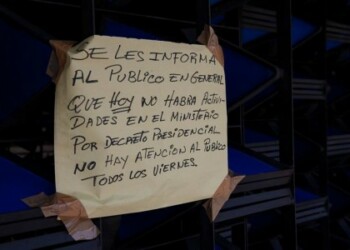 SE LES INFORMA
AL PUBLICO EN GENERAL
QUE HOY NO HABRA ACTIVI-
DADES EN EL MINISTERIO
POR DECRETO PRESIDENCIAL
NO HAY ATENCION AL PUBLICO
TODOS LOS VIERNES